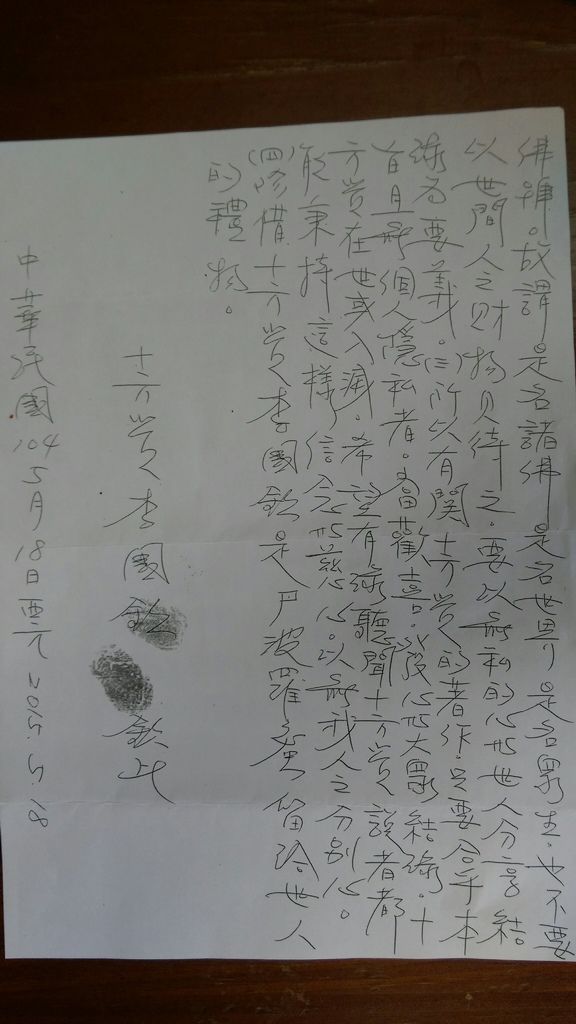 佛號。故謂是名諸佛是名世界是名眾生。也不要
以世間人之財物見待之。要以無私的心與世人分享結
緣為要義。(三)所以有關十方賞的著作。只要合乎本
旨且無個人隱私者。當歡喜發心與大眾結緣。十
方賞在世或入滅。希望有緣聽聞十方賞說者都
能秉持這樣信念與慈心。以無我人之分別心。
(四)修借十方賞李國欽是尸波羅蜜留給世人
的禮物。
十方賞李國欽 欽此
中華民國104 5月18日西元2015.5.18